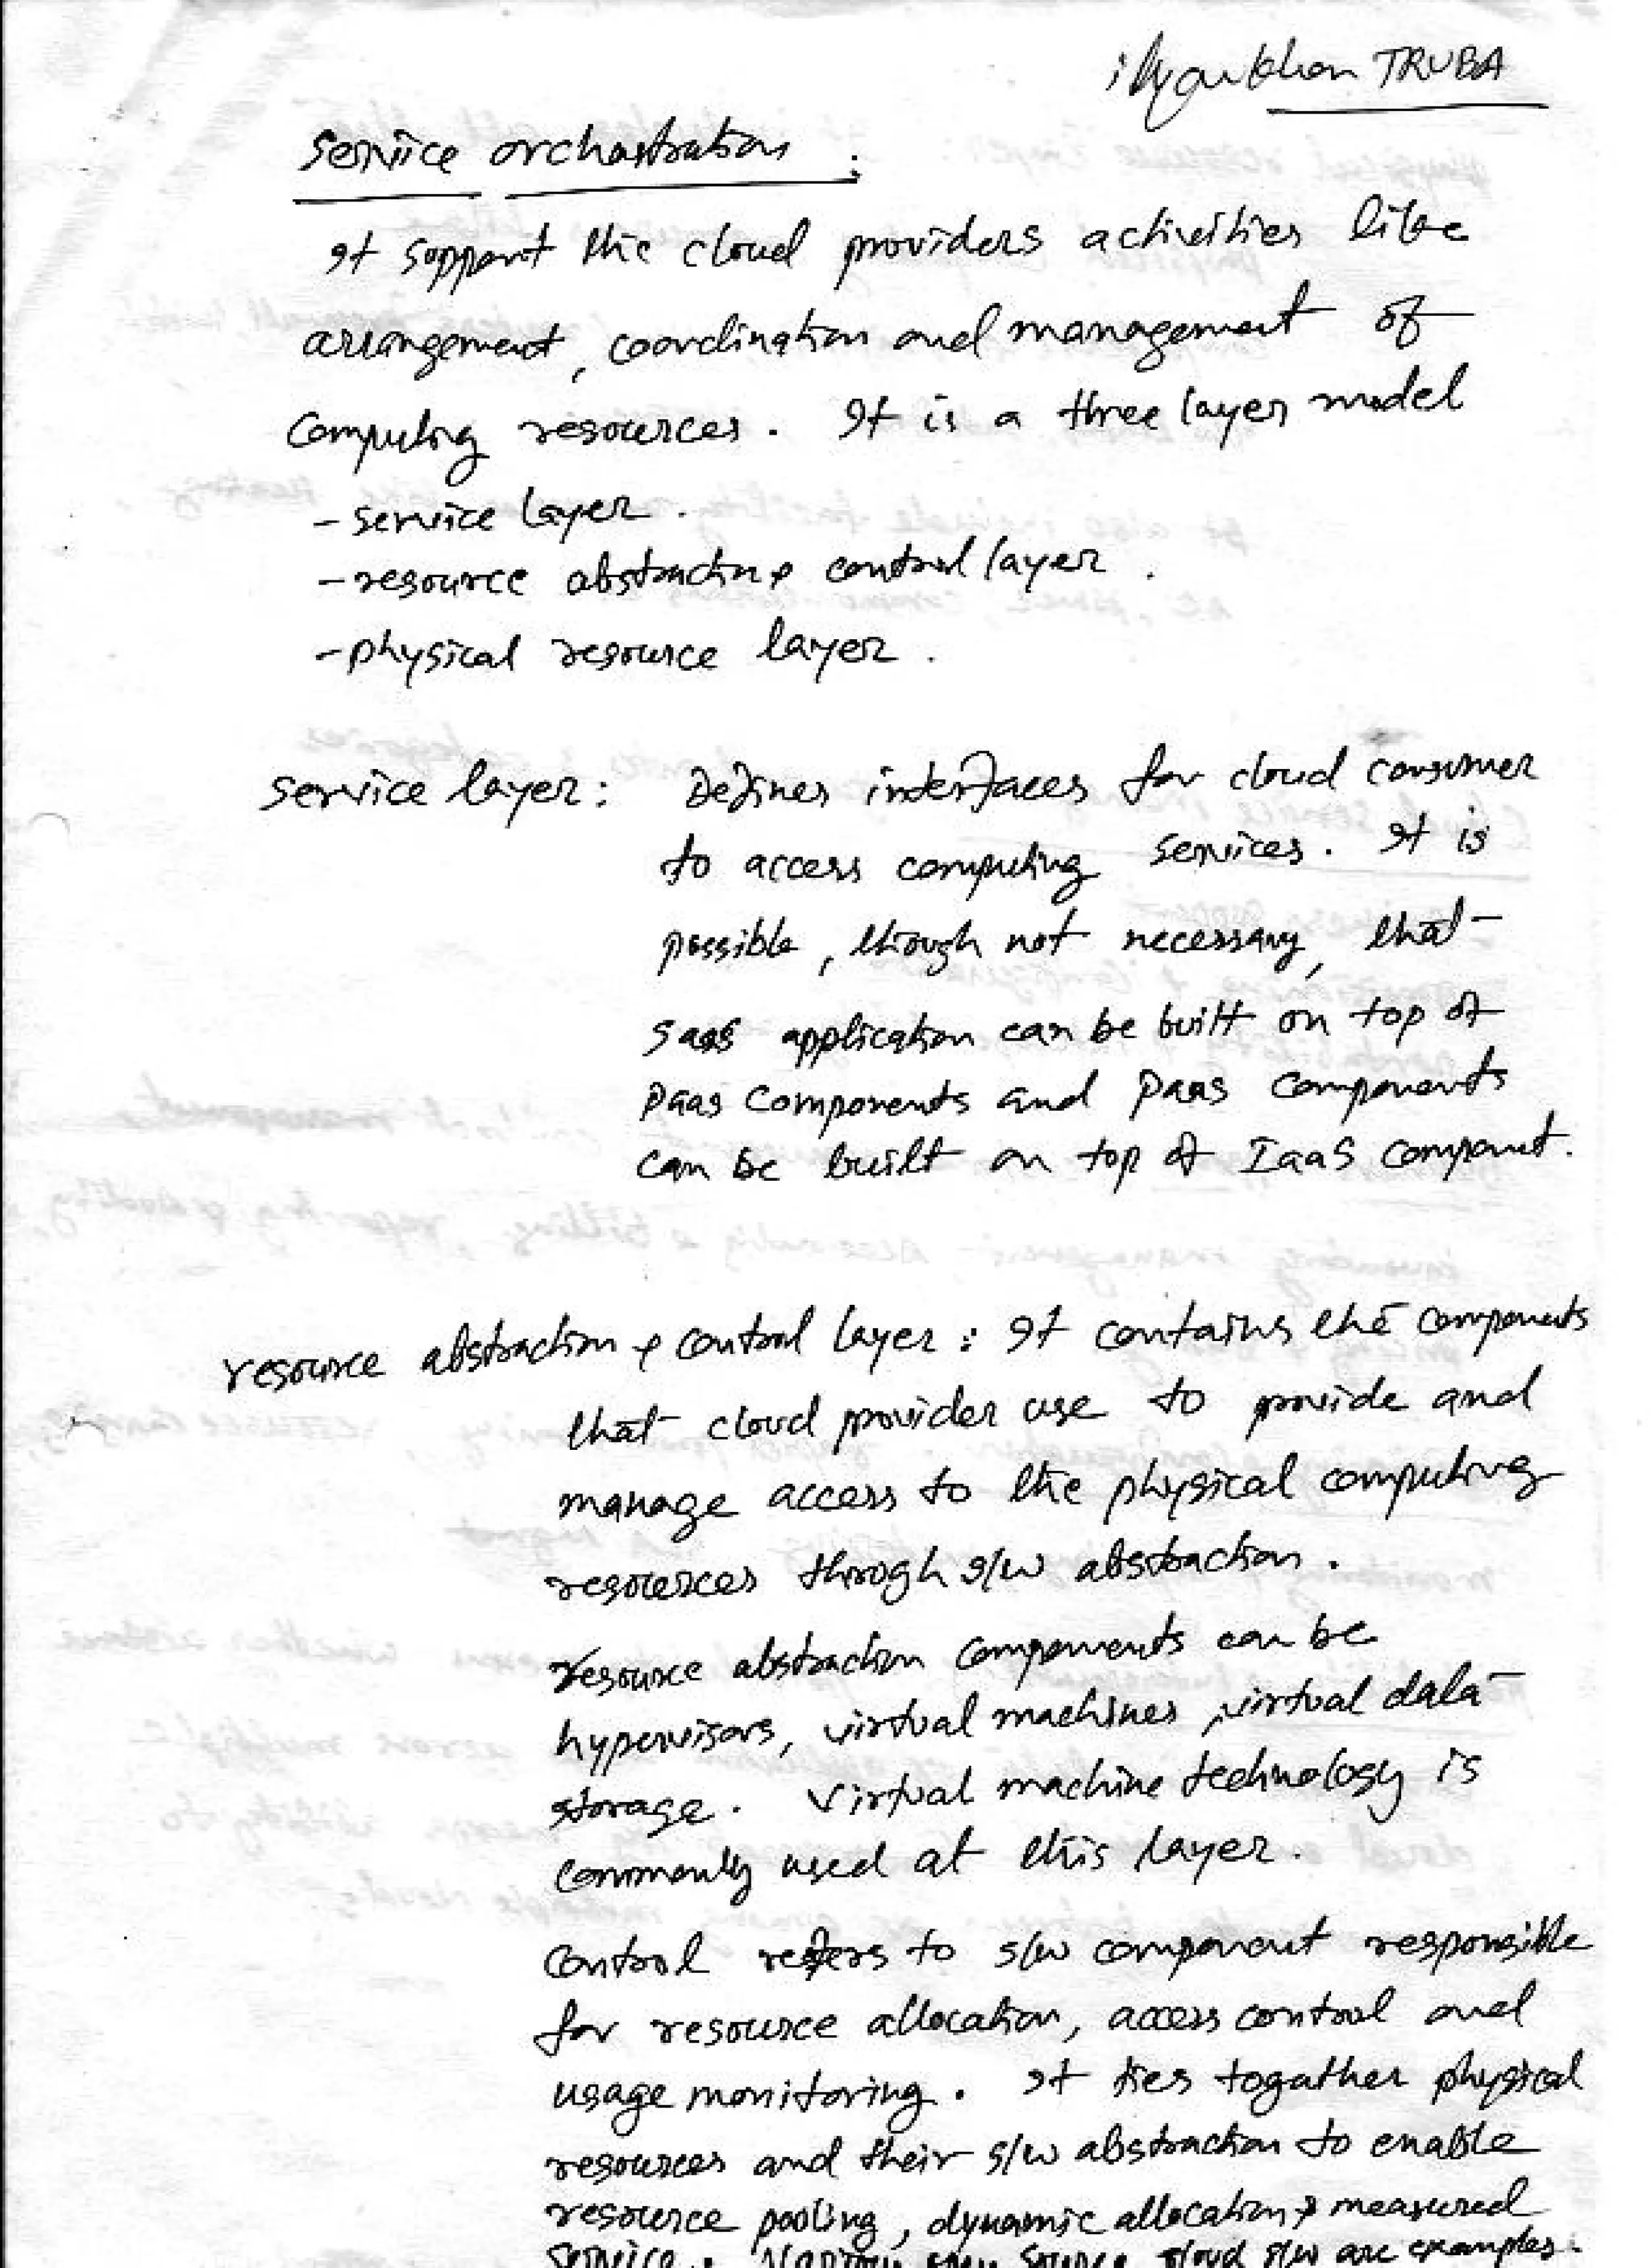 TRUBA
Service orchastration :
It support the cloud providers activities like
arrangement, coordination and management of
Computing resources. It is a three layer model
- service layer.
- resource abstraction & control layer.
- physical resource layer.
Service layer: Defines interfaces for cloud consumer
to access computing services. It is
possible, though not necessary, that
SaaS application can be built on top of
PaaS Components and PaaS Components
can be built on top of IaaS component.
resource abstraction & control layer : It contains the components
that cloud provider use to provide and
manage access to the physical computing
resources throgh s/w abstraction.
resource abstraction components can be
hypervisors, virtual machines, virtual data
storage. Virtual machine technology is
commonly used at this layer.
Control refers to s/w component responsible
for resource allocation, access control and
usage monitoring. It ties togather physical
resources and their s/w abstraction to enable
resource pooling, dynamic allocation & measured
Service. Various open source cloud s/w are examples.